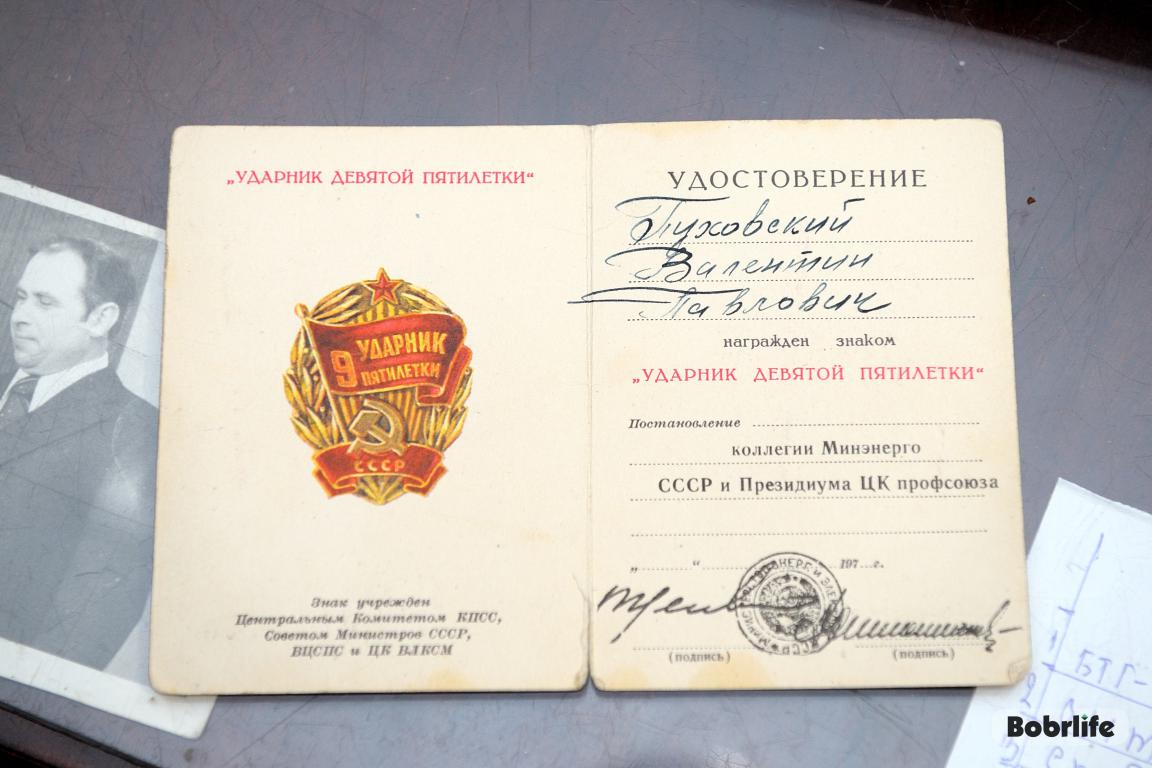 „УДАРНИК ДЕВЯТОЙ ПЯТИЛЕТКИ“
9 УДАРНИК
ПЯТИЛЕТКИ
СССР
Знак учрежден
Центральным Комитетом КПСС,
Советом Министров СССР,
ВЦСПС и ЦК ВЛКСМ
УДОСТОВЕРЕНИЕ
Пуховский
Валентин
Павлович
награжден знаком
„УДАРНИК ДЕВЯТОЙ ПЯТИЛЕТКИ“
Постановление
коллегии Минэнерго
СССР и Президиума ЦК профсоюза
„......“ 197...г.
(подпись) (подпись)
БТГ-
Bobrlife